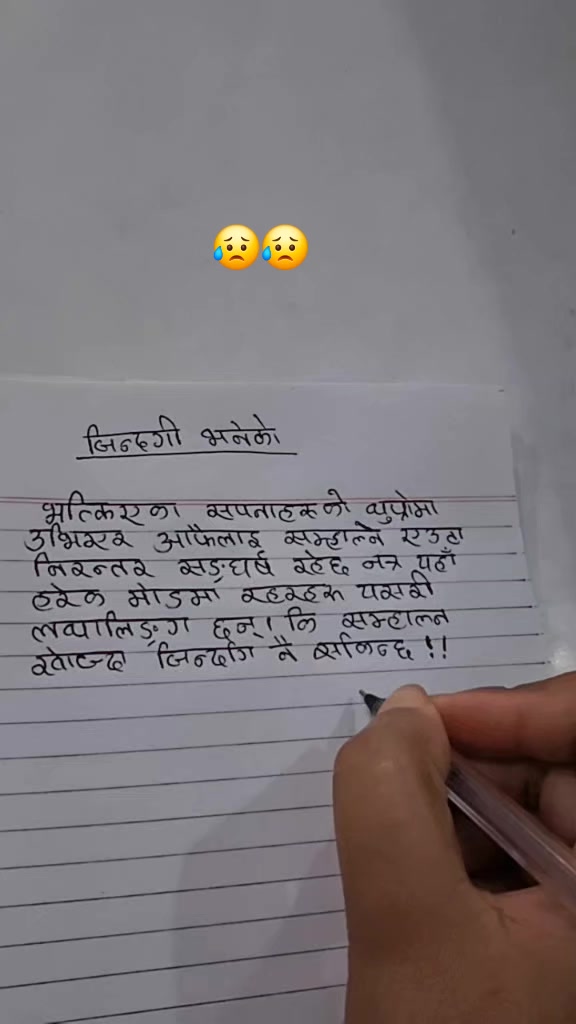 जिन्दगी भनेको
भत्किएका सपनाहरूको थुप्रोमा
उभिएर आफैलाइ सम्हाल्ने एउटा
निरन्तर सङ्घर्ष रहेछ नत्र यहाँ
हरेक मोडमा रहरहरू यसरी
लथालिङ्ग छन्। कि सम्हाल्न
खोज्दा जिन्दगि नै सकिन्छ !!